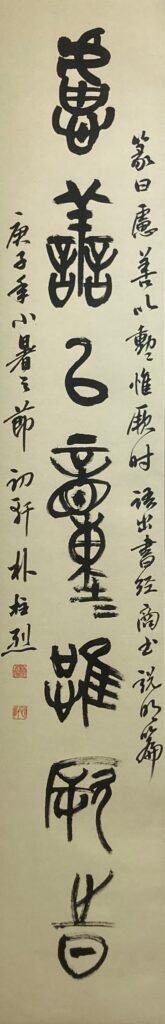 慮善以動惟厥時
篆曰慮善以動惟厥时語出書经商書說命篇
庚子年小暑之節 初軒 朴柱烈